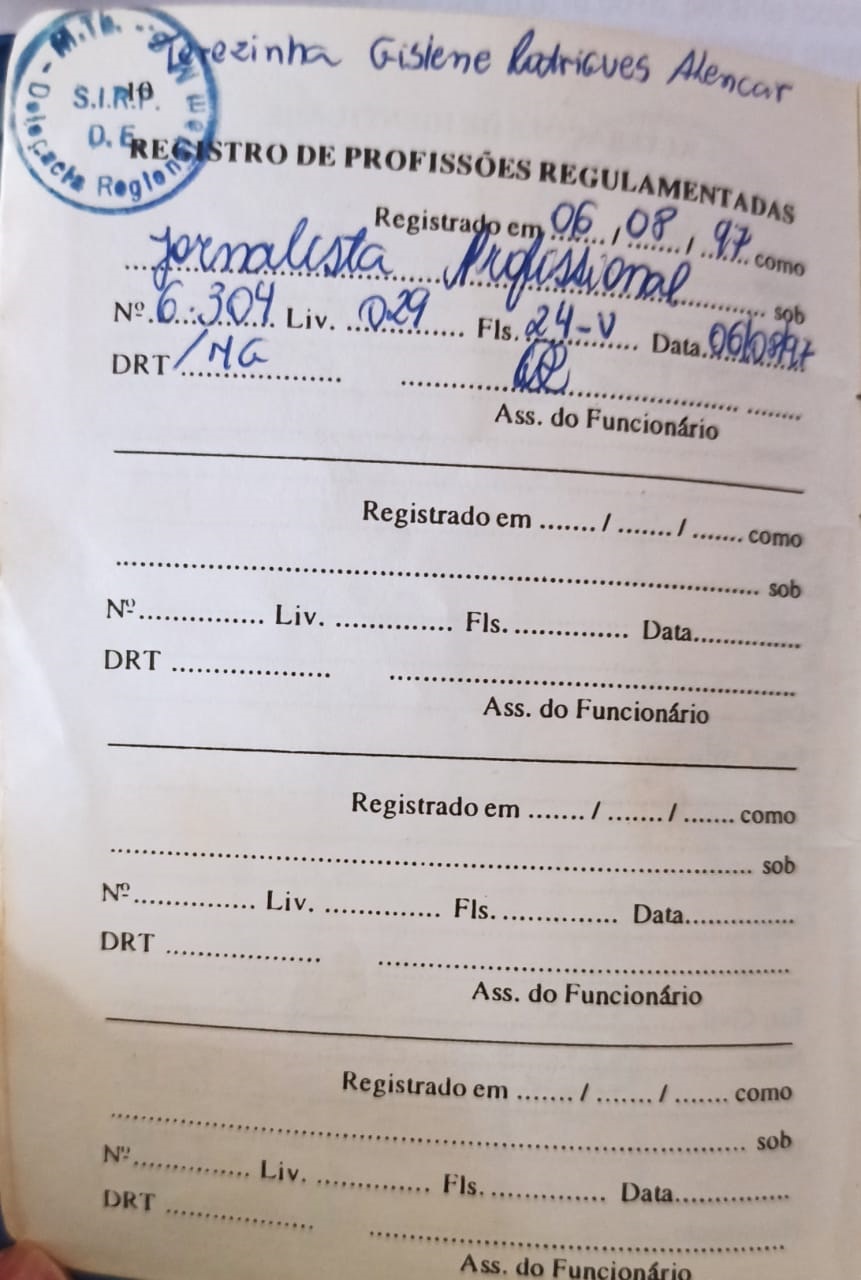 Terezinha Gislene Rodrigues Alencar
M.Tb. - Delegacia Regional
S.I.R.P.
D. E.
10
REGISTRO DE PROFISSÕES REGULAMENTADAS
Registrado em 06 / 08 / 97 como
Jornalista Profissional sob
Nº. 6.304 Liv. 029 Fls. 24-V Data. 06/08/97
DRT /MG
Ass. do Funcionário
Registrado em ....... / ....... / ....... como
.......... sob
Nº.............. Liv. ............. Fls. ............. Data.............
DRT .................. ..........
Ass. do Funcionário
Registrado em ....... / ....... / ....... como
.......... sob
Nº.............. Liv. ............. Fls. ............. Data.............
DRT .................. ..........
Ass. do Funcionário
Registrado em ....... / ....... / ....... como
.......... sob
Nº.............. Liv. ............. Fls. ............. Data.............
DRT .................. ..........
Ass. do Funcionário